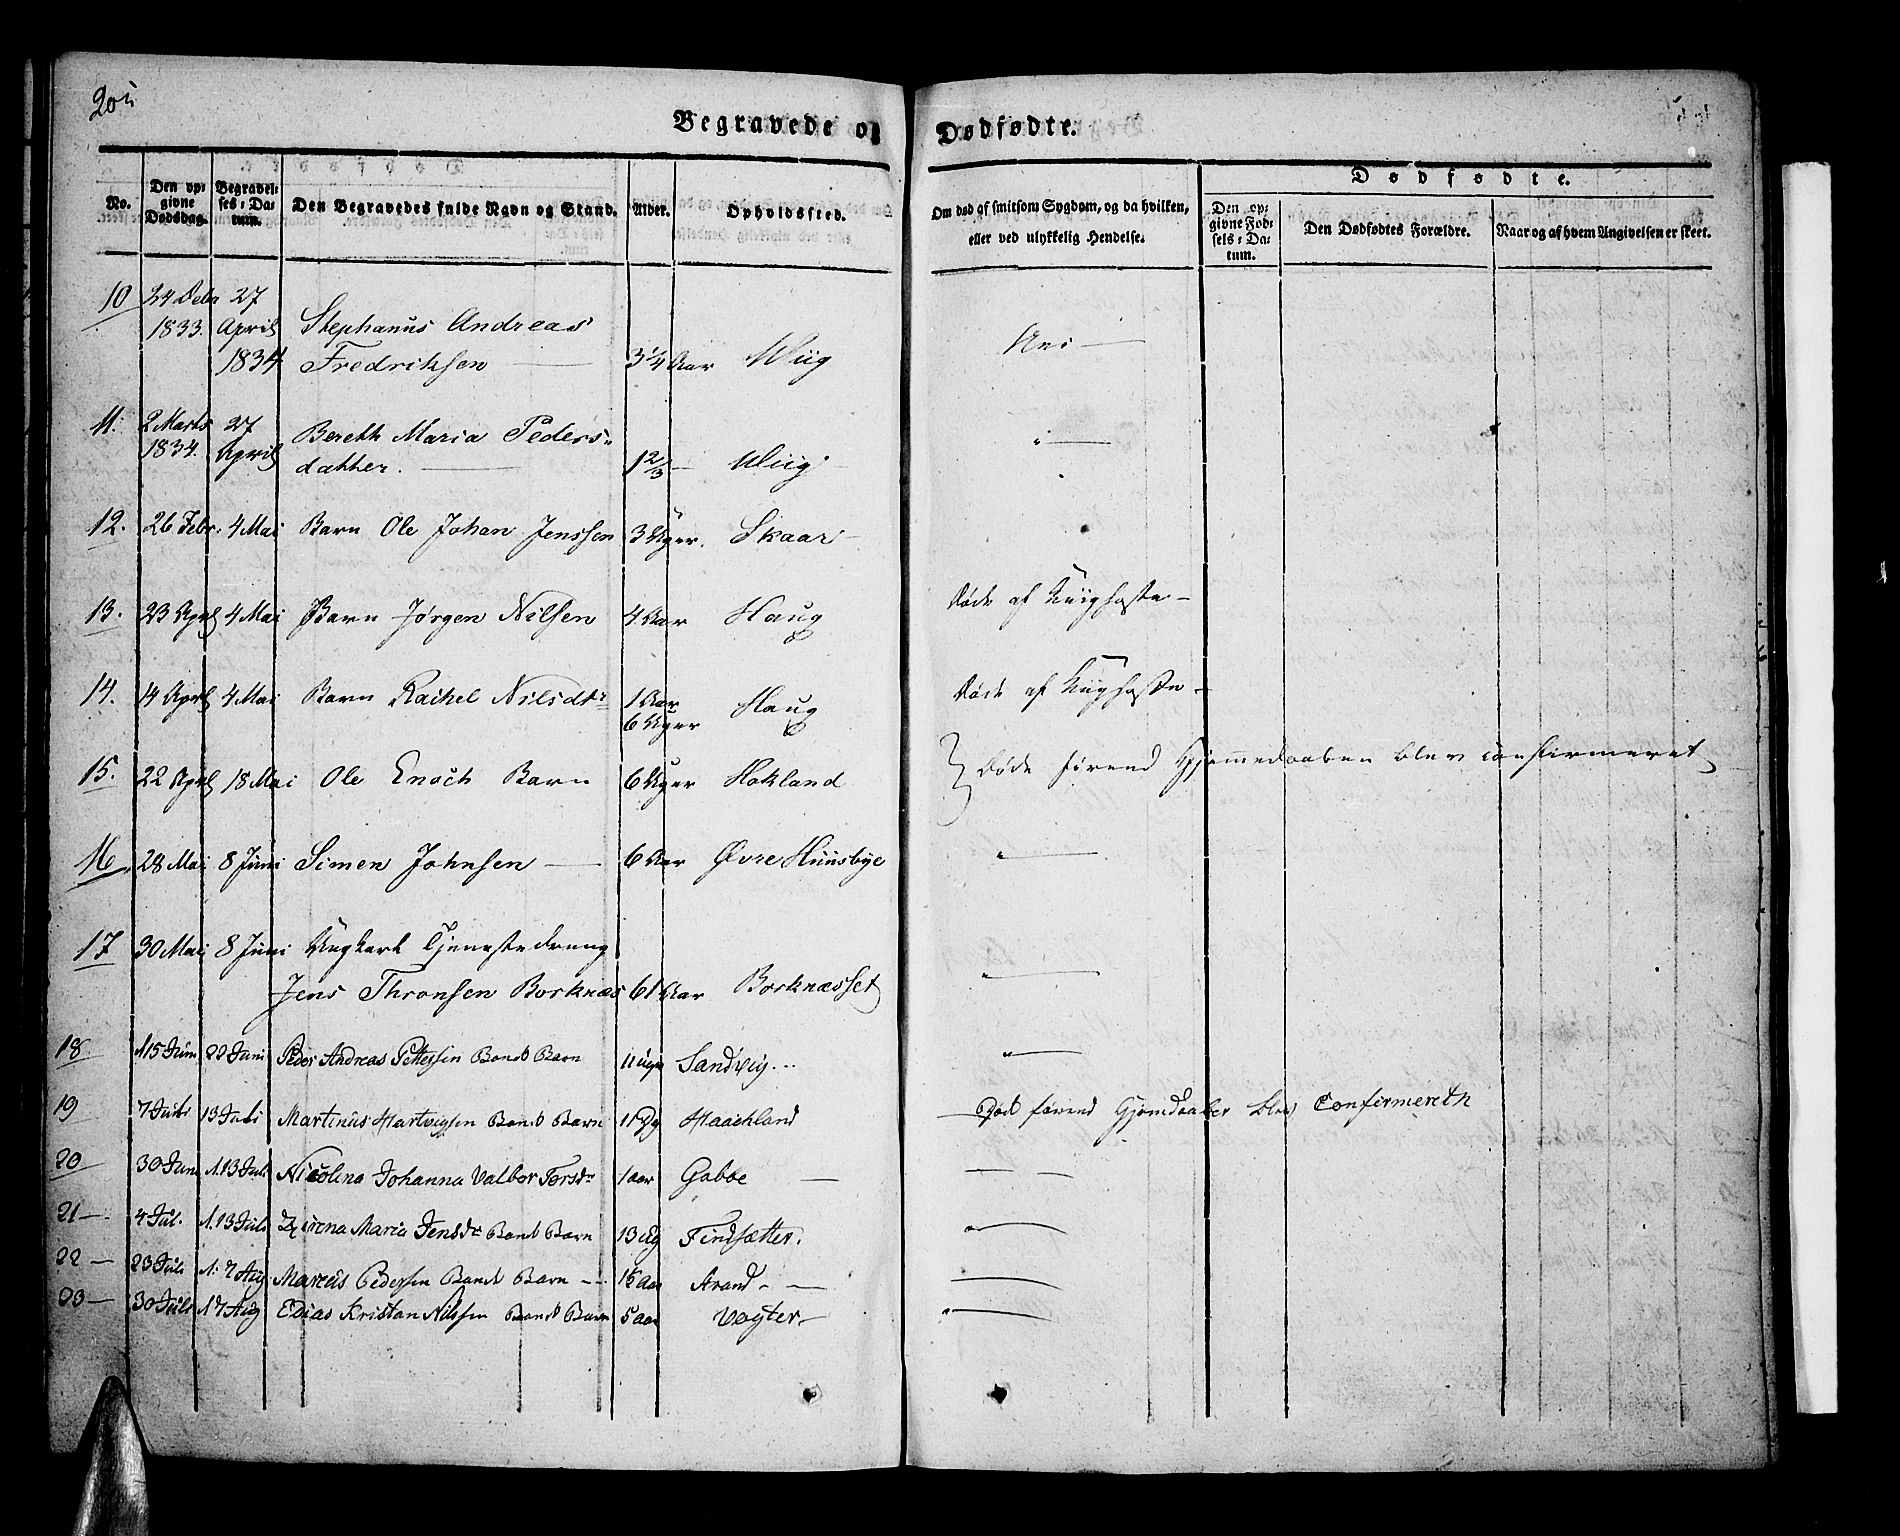 Begravede og Dødfødte.
No. Den opgivne Dødsdag. Begravelses-Datum. Den Begravedes fulde Navn og Stand. Alder. Opholdssted. Om død af smitsom Sygdom, og da hvilken, eller ved ulykkelig Hendelse. Dødfødte. Den opgivne Fødsels-Datum. Den Dødfødtes Forældre. Naar og af hvem Angivelsen er skeet.
10 24 Debr 27
1833. April Stephanus Andreas
1834 Fredriksen — 3 1/4 Aar Wiig Nei —
11. 2 Marts 27 Bereth Maria Peders-
1834. April datter. — 1 2/3 — Wiig "—
12. 26 Febr. 4 Mai Barn Ole Johan Jenssen 3 Uger. Skaar
13. 23 April 4 Mai Barn Jørgen Nilsen 4 Aar Haug Døde af Kiighoste
14. 14 April 4 Mai Barn Rachel Nilsdtr 1 Aar
6 Uger Haug Døde af Kiighoste
15. 22 April 18 Mai Ole Enoch Barn 6 Uger Hokland Døde førend Hjemmedaaben blev confirmeret
16 28 Mai 8 Juni Simen Johnsen — 6 Aar Øvre Huusbye "—
17 30 Mai 8 Juni Ungkarl Tjenestedreng
Jens Thronsen Borknæs 61 Aar Borknæsset "—
18 15 Juni 22 Juni Peder Andreas Pettersen Bonde Barn 11 uger Sandvig "—
19 7 Juli 13 Juli Martinus Hartvigsen Bonde Barn 11 Dg Haachland Død førend Hjemdaaben blev Confirmereth
20 30 Juni 13 Juli Nicolina Johanna Valbor Torsdr 1 aar Gaboe — —
21 — 4 Jul. 13 Juli Maria Jensdr Bond Barn 13 ug Findsætter. "—
22 — 23 Juli 7 Aug Marcus Pedersen Bonde Barn — 15 aar Strand — —
23 — 30 Juli 17 Aug Edias Kristan Nilssen Bonde Barn 5 aar Vogter — "—